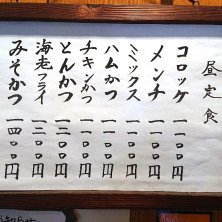 昼定食
コロッケ 一一〇〇円
メンチ 一一〇〇円
ミックス 一一〇〇円
ハムかつ 一一〇〇円
チキンかつ 一一〇〇円
とんかつ 一二〇〇円
海老フライ 一三〇〇円
みそかつ 一四〇〇円